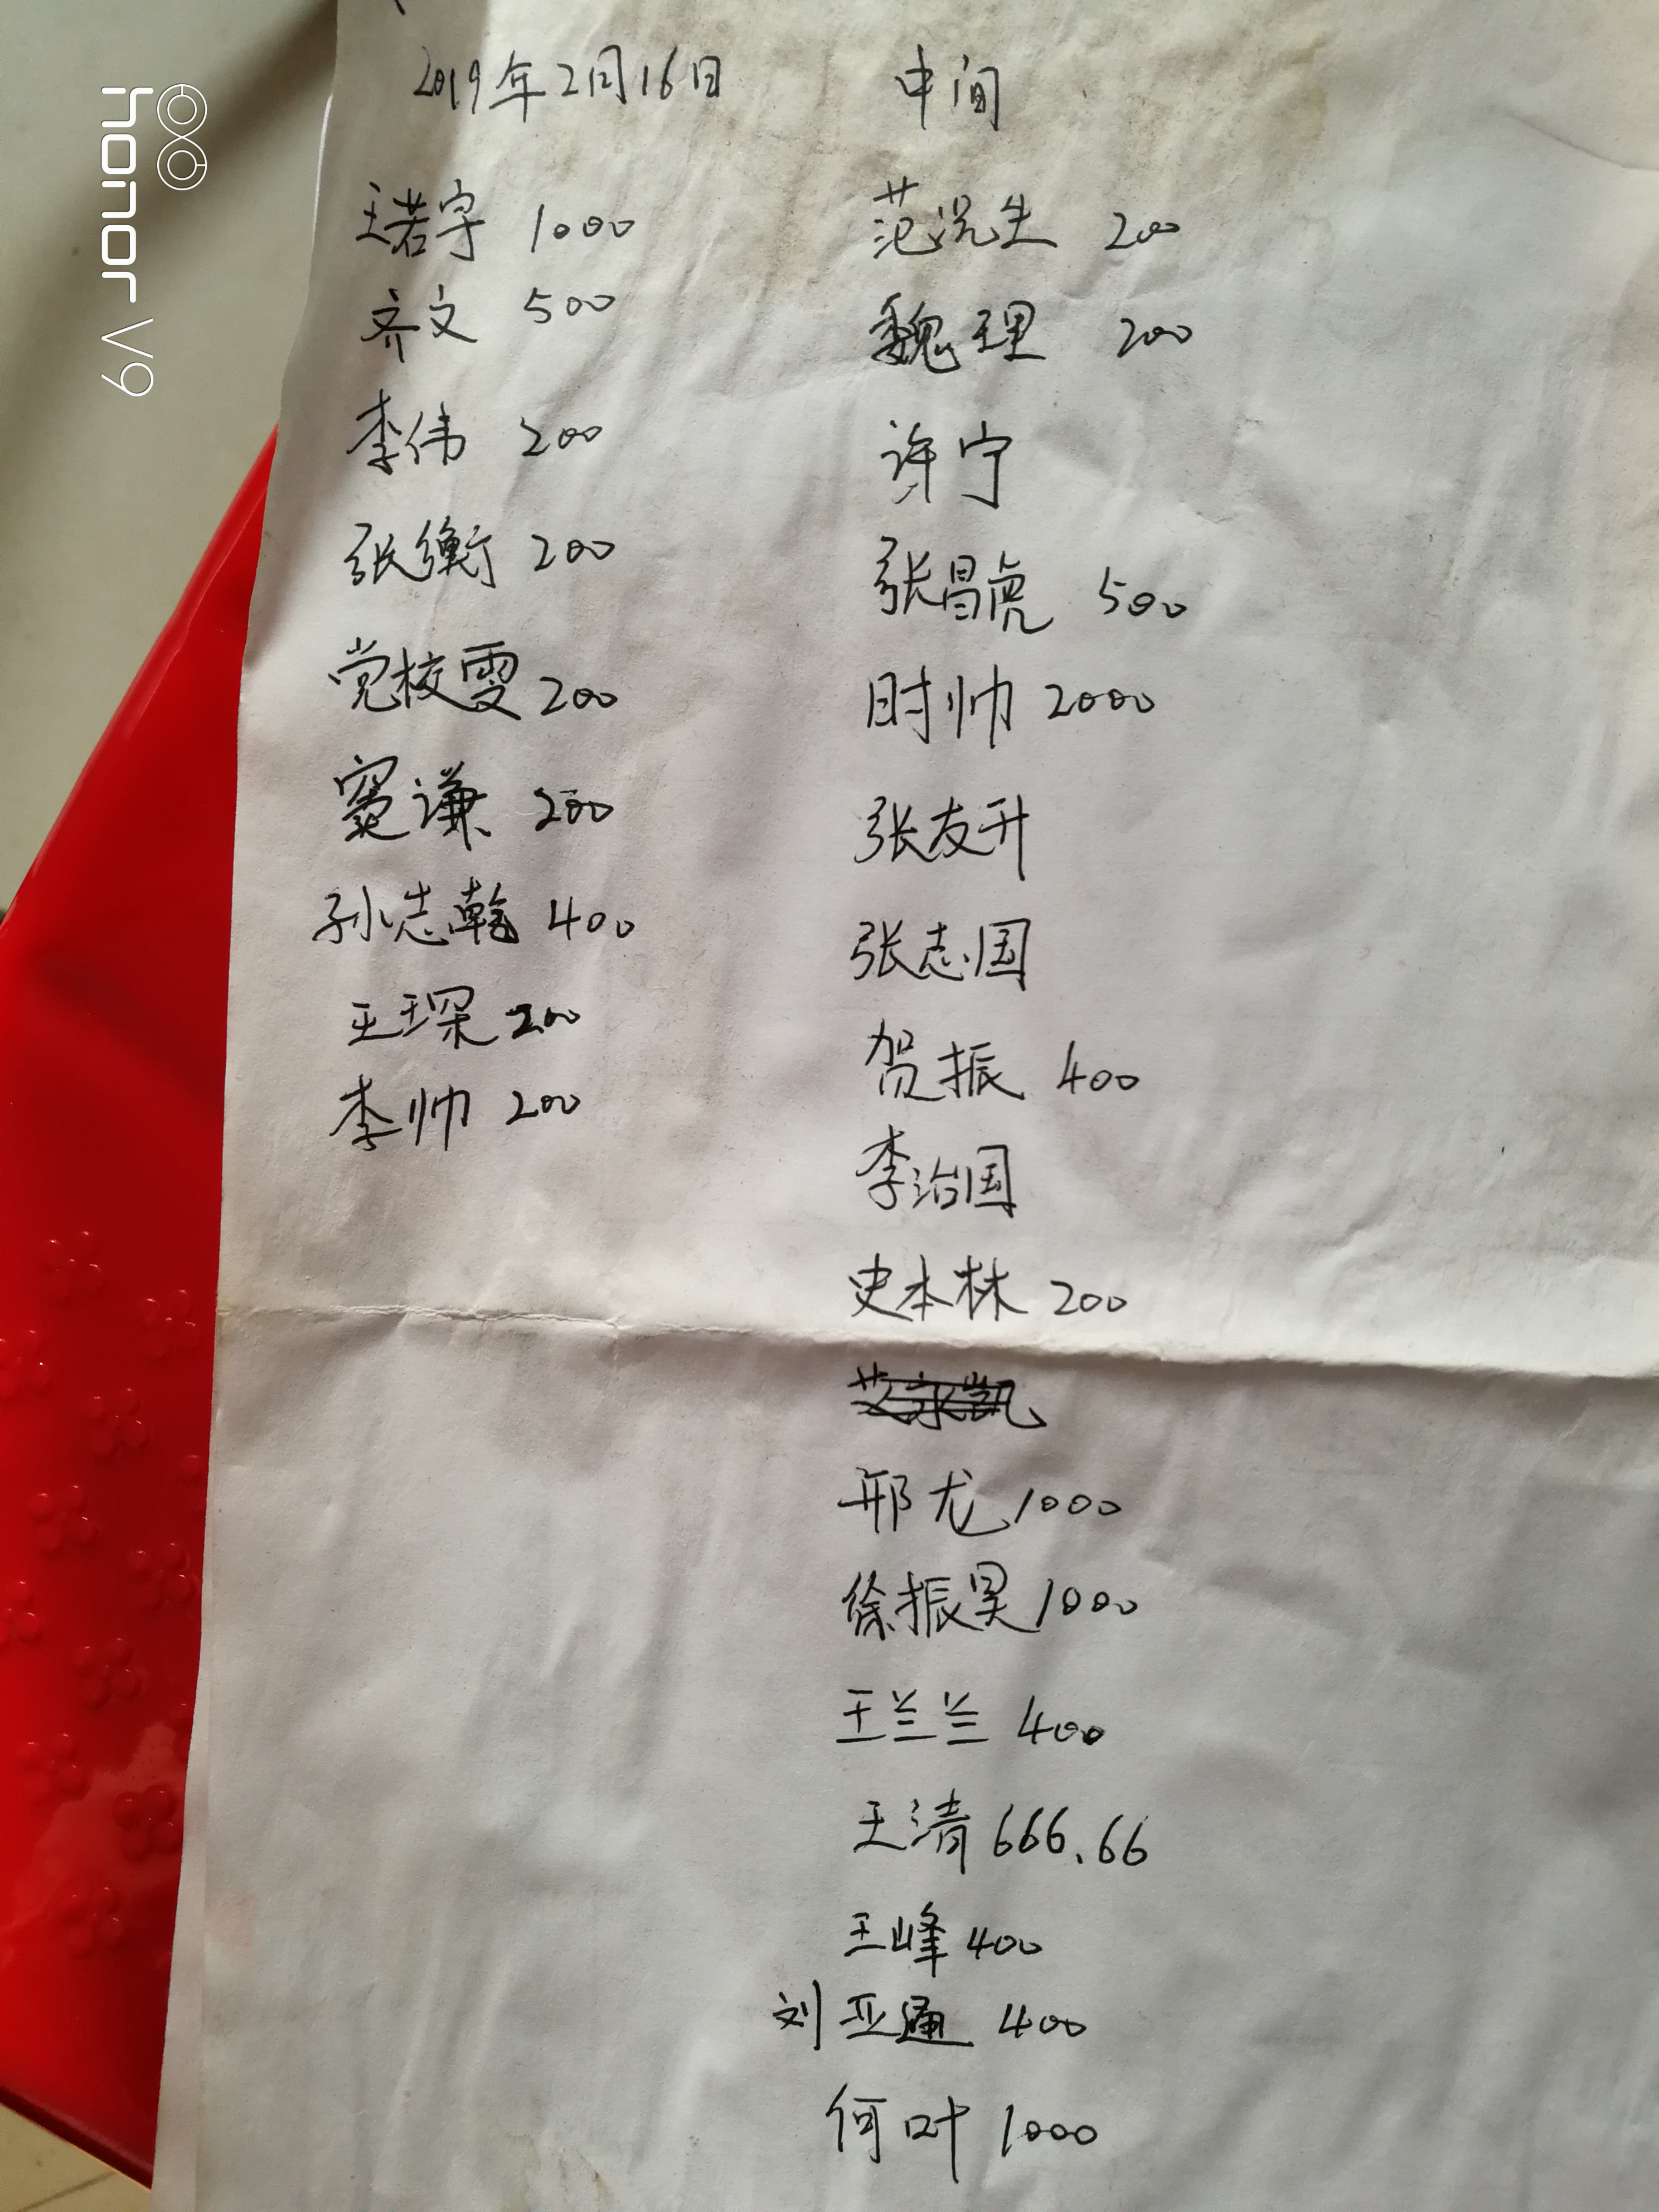 2019年2月16日
王若宇 1000
齐文 500
李伟 200
张衡 200
党校雯 200
窦谦 200
孙志翰 400
王琛 200
李帅 200
中间
范说生 200
魏理 200
许宁
张昌虎 500
时帅 2000
张友升
张志国
贺振 400
李治国
史本林 200
邢龙 1000
徐振昊 1000
王兰兰 400
王清 666.66
王峰 400
刘亚通 400
何叶 1000
honor V9